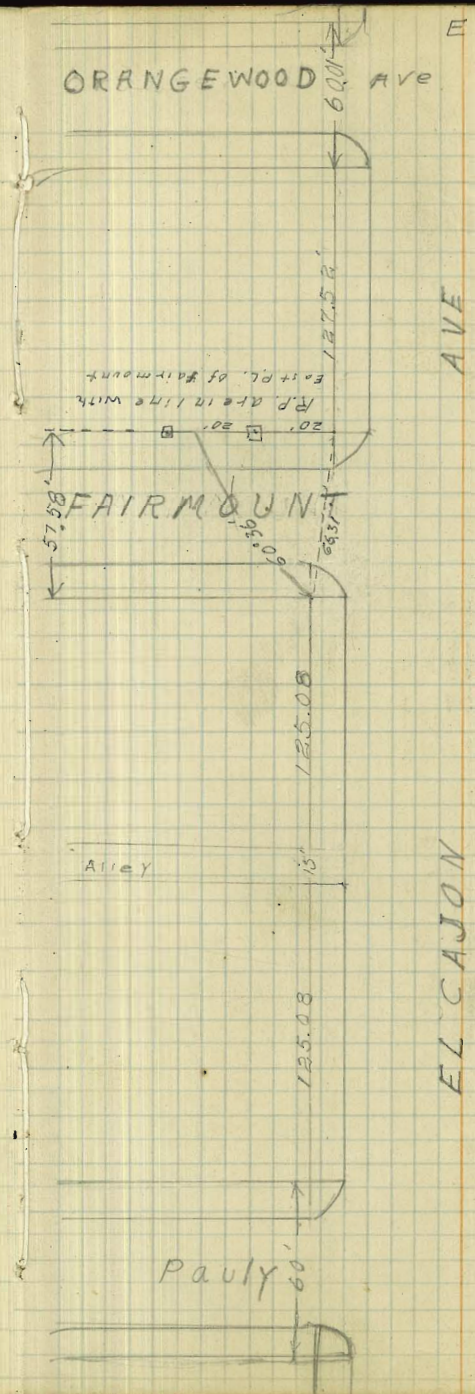 E
ORANGEWOOD Ave
60.01'
127.52'
R.P. are in line with
East P.L. of Fairmount
20' 20'
57.58'
FAIRMOUNT
60°36'
125.08
Alley
15'
125.08
Pauly
60'
EL CAJON AVE